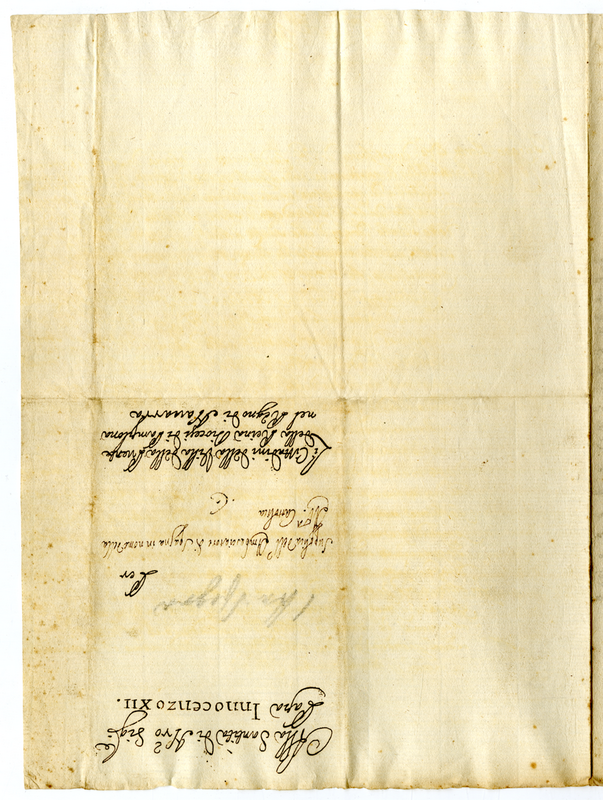 Alla Santità di Nro Sigre
Papa INNOCENZO XII.
Per
Supplica dell' Ambasciatore di Spagna in nome della
Mtà Cattolica
Li Cittadini della Villa della Puente
della Reina Diocesi di Pamplona
nel Regno di Navarra